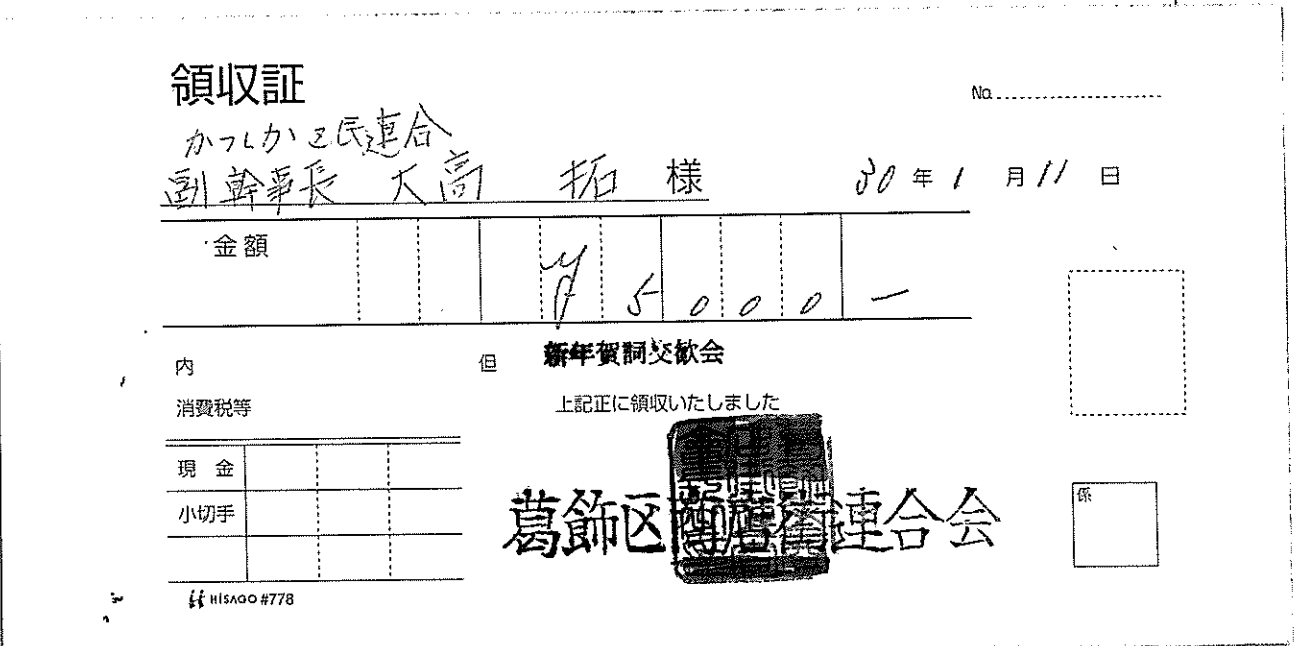 領収証
No.
かつしか区民連合
副幹事長 大高 拓 様
30年1月11日
金額 ¥5000-
内
但 新年賀詞交歓会
消費税等
上記正に領収いたしました
現金
小切手
葛飾区商店街連合会
係
HISAGO #778